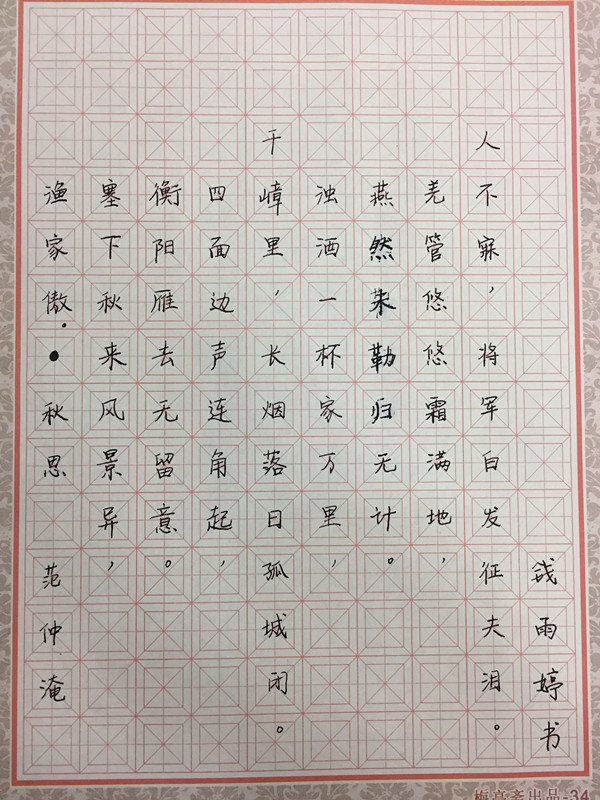 渔家傲·秋思 范仲淹
塞下秋来风景异，
衡阳雁去无留意。
四面边声连角起，
千嶂里，长烟落日孤城闭。
浊酒一杯家万里，
燕然未勒归无计。
羌管悠悠霜满地，
人不寐，将军白发征夫泪。
钱雨婷书
出品-34